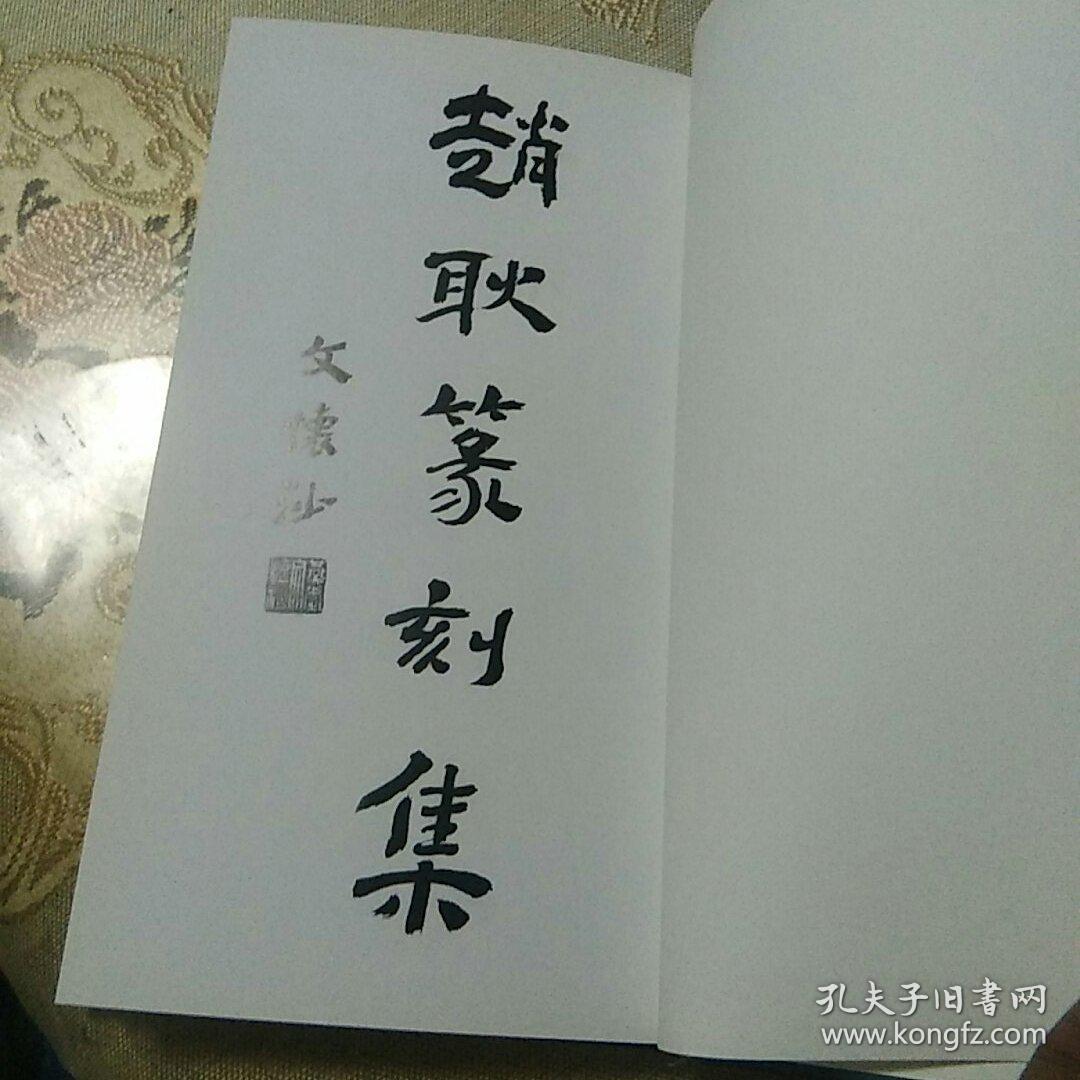 趙耿篆刻集
文懷沙
孔夫子旧書网
www.kongfz.com